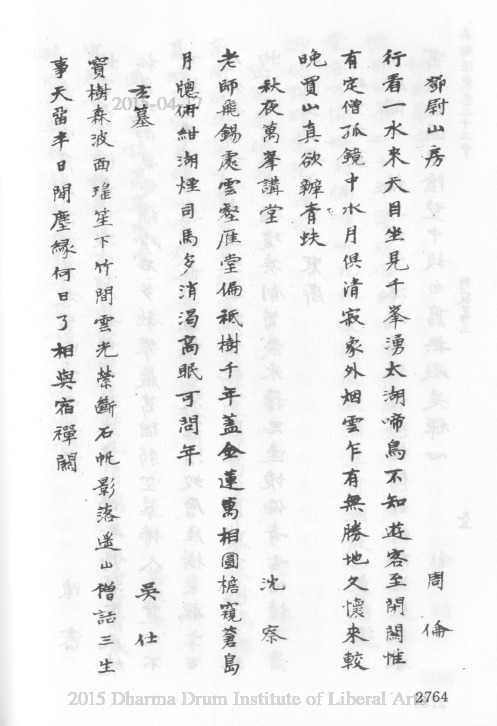 鄧尉山房 周倫
行看一水來天目坐見千峯湧太湖啼鳥不知遊客至閉關惟
有定僧孤鏡中水月俱清寂象外烟雲乍有無勝地久懷來較
晚買山真欲辦青蚨
秋夜萬峯講堂 沈察
老師飛錫處雲壑雁堂偏祗樹千年蓋金蓮萬相圓檐窺蒼島
月牕俯紺湖煙司馬多消渴高眠可問年
玄墓 吳仕
寶樹森波面瑤笙下竹間雲光縈斷石帆影落遙山僧話三生
事天留半日閒塵緣何日了相與宿禪關
2015-04-17
2764
2015 Dharma Drum Institute of Liberal Arts